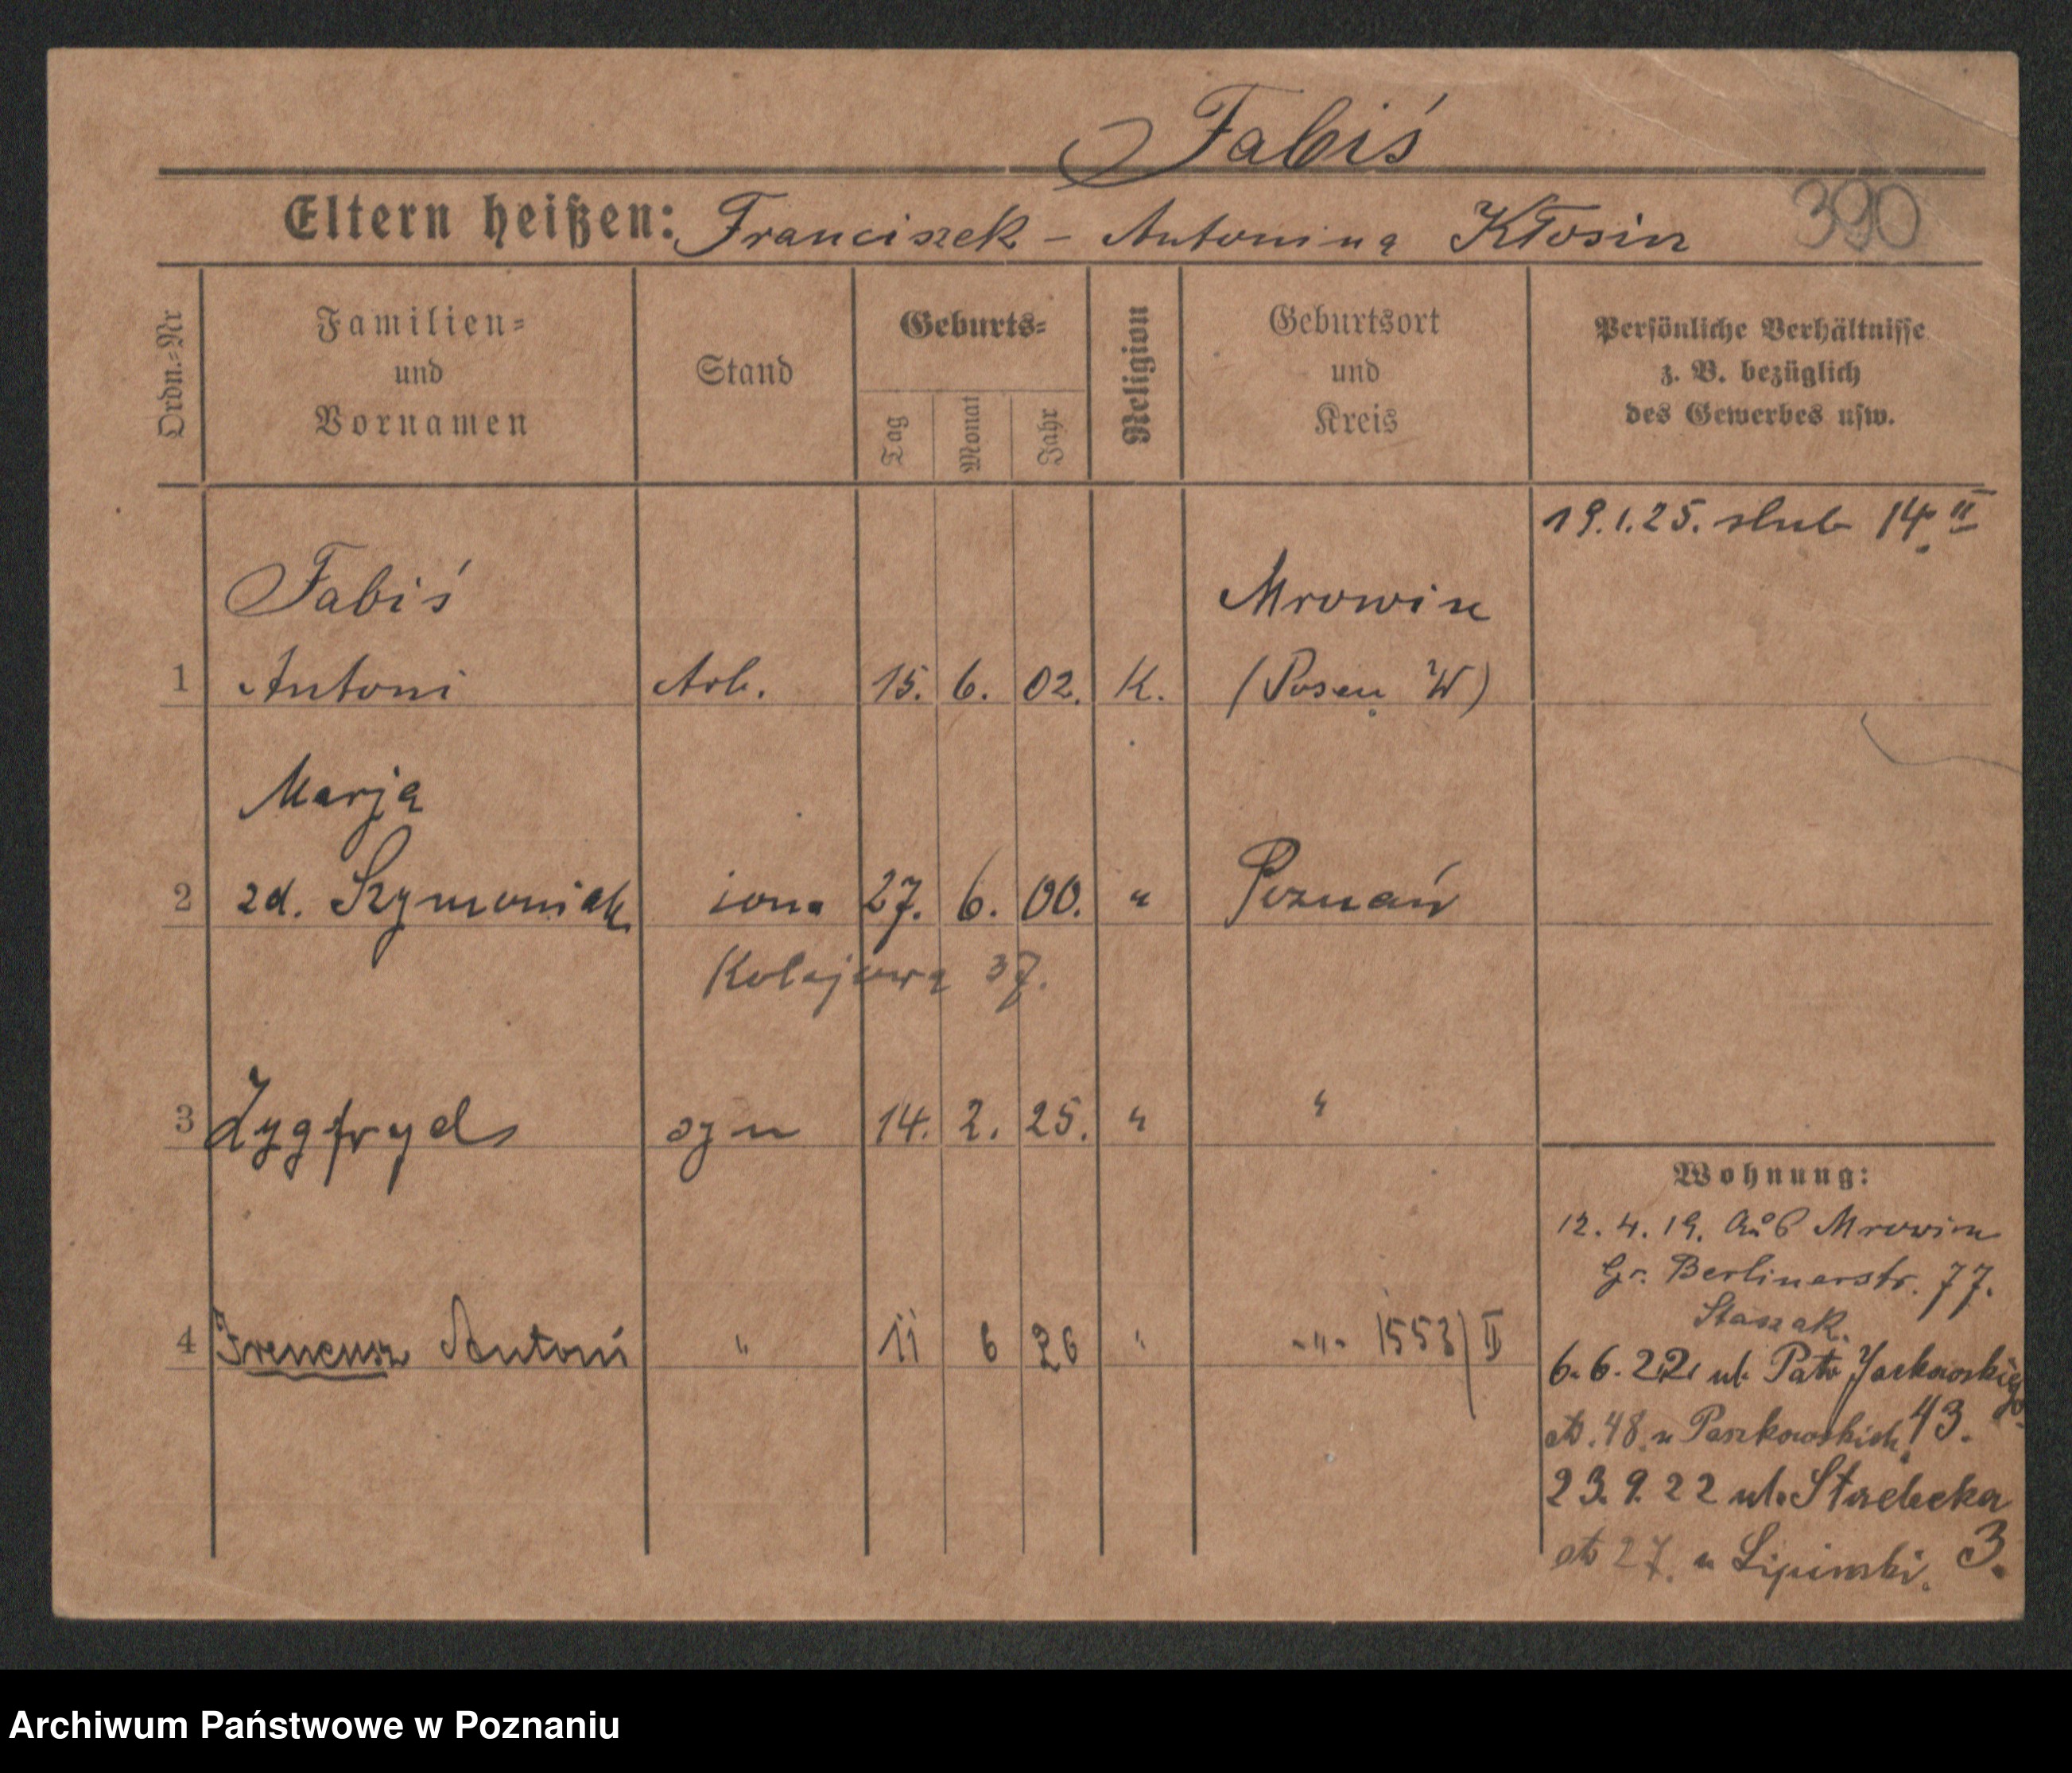 Fabiś
Eltern heißen: Franciszek - Antonina Kłosin 390
Ordn.=Nr
Familien=
und
Vornamen
Stand
Geburts=
Tag
Monat
Jahr
Religion
Geburtsort
und
Kreis
Persönliche Verhältnisse
z. B. bezüglich
des Gewerbes usw.
19.1.25. slub 14 II
Fabiś Mrowin
1 Antoni Arb. 15. 6. 02. K. (Posen W)
Marja
2 zd. Szymoniak żona 27. 6. 00. " Poznań
Kolejowa 37.
3 Zygfryd syn 14. 2. 25. " "
Wohnung:
12. 4. 19. Aus Mrowin
Gr. Berlinerstr. 77.
Staszak.
4 Ireneusz Antoni " 11 6 26 " -"- 1553/II
6. 6. 22 ul. Patr Jackowskiego
48 u Paszkowskich 43.
23. 9. 22 ul.
27. u Lipinski. 3.
Archiwum Państwowe w Poznaniu